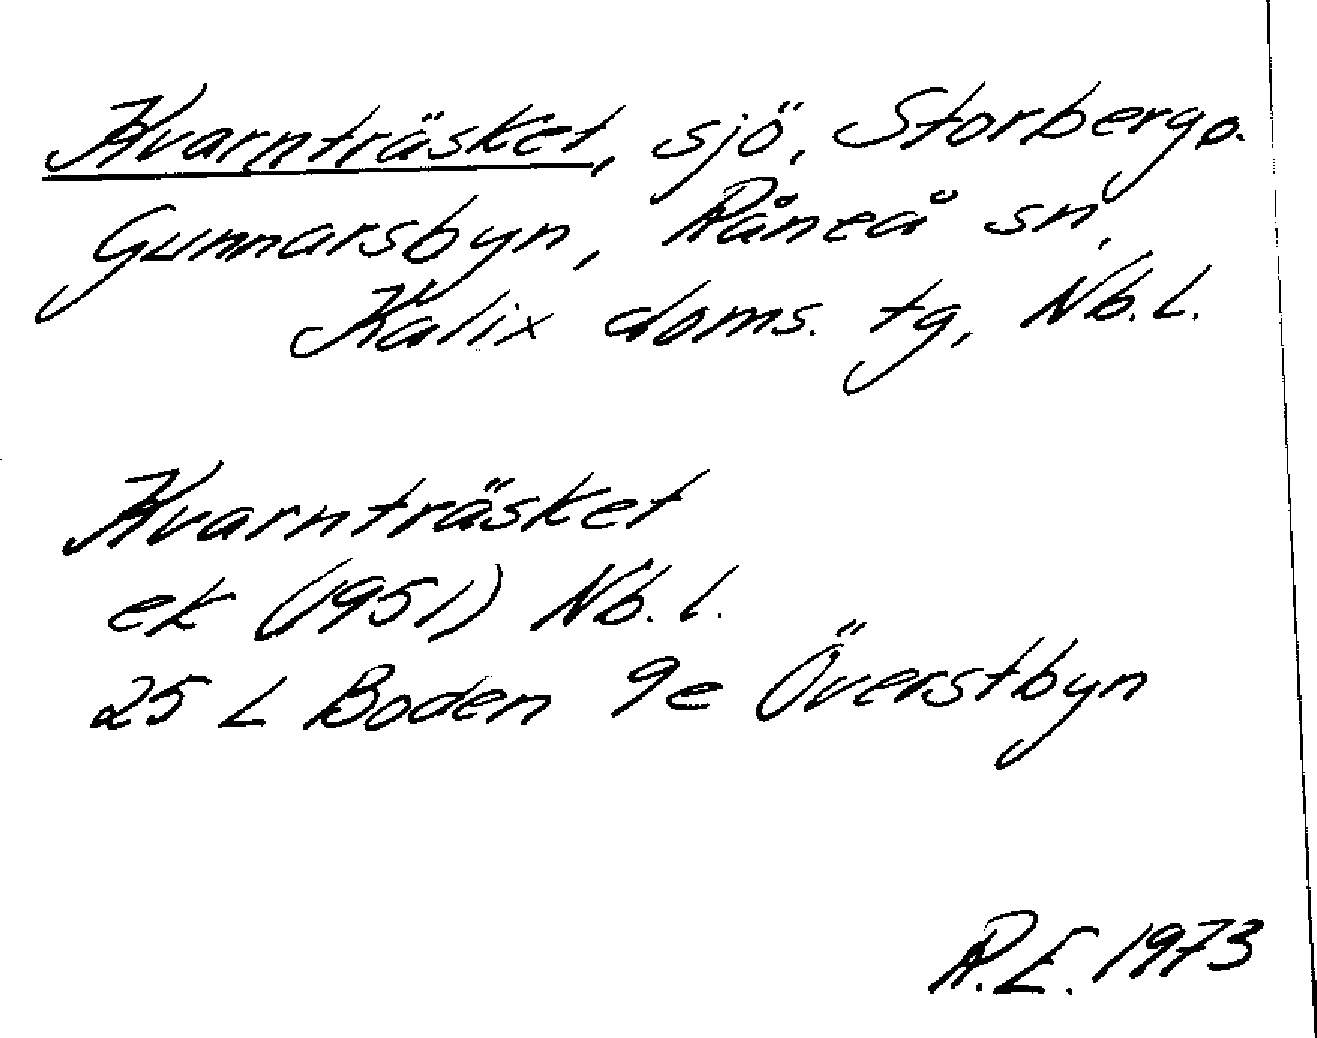 Kvarnträsket, sjö, Storbergo.
Gunnarsbyn, Råneå sn,
Kalix doms. tg, Nb. L.
Kvarnträsket
ek (1951) Nb. l.
25 L Boden 9e Överstbyn
R.E. 1973